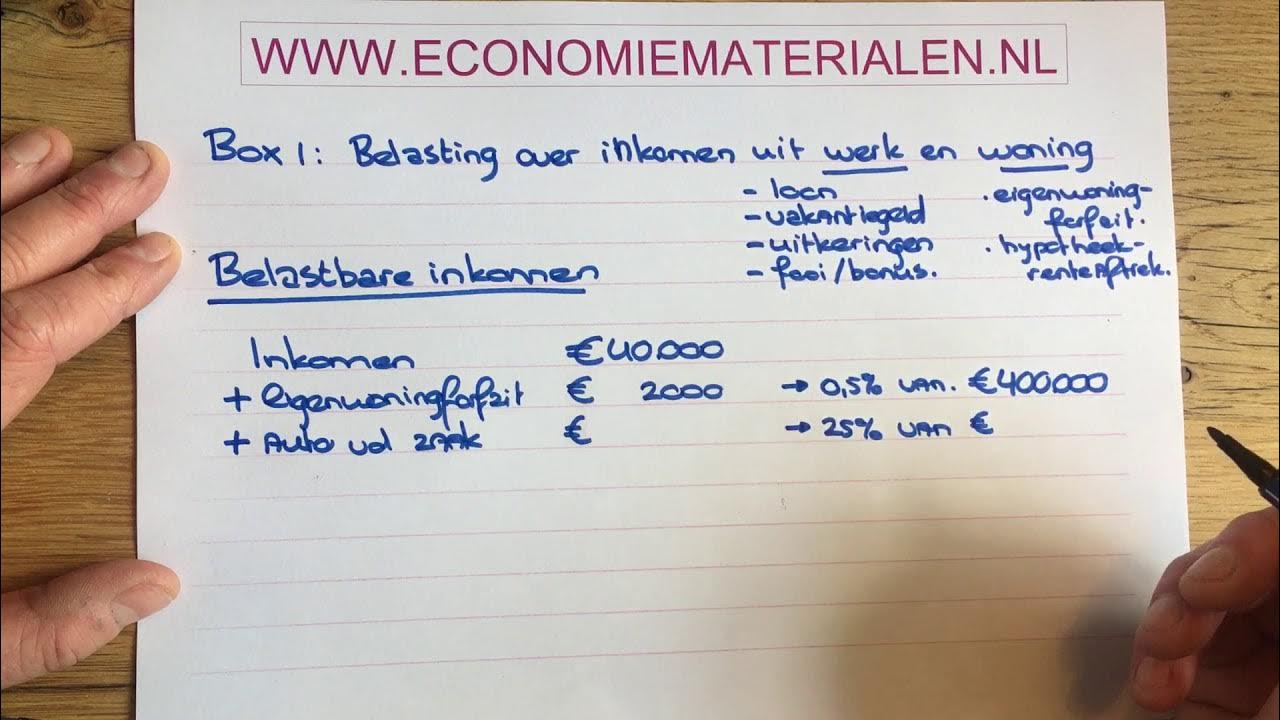 WWW.ECONOMIEMATERIALEN.NL
Box 1: Belasting over inkomen uit werk en woning
- loon
- vakantiegeld
- uitkeringen
- fooi/bonus.
. eigenwoning-
forfeit.
. hypotheek-
renteaftrek.
Belastbare inkomen
Inkomen € 40.000
+ Eigenwoningforfeit € 2000 → 0,5% van. €400.000
+ Auto vd zaak € → 25% van €